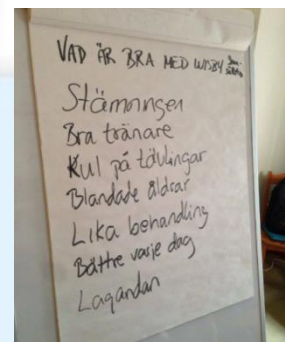 VAD ÄR BRA MED WISBY
Stämningen
Bra tränare
Kul på tävlingar
Blandade åldrar
Lika behandling
Bättre varje dag
Lagandan